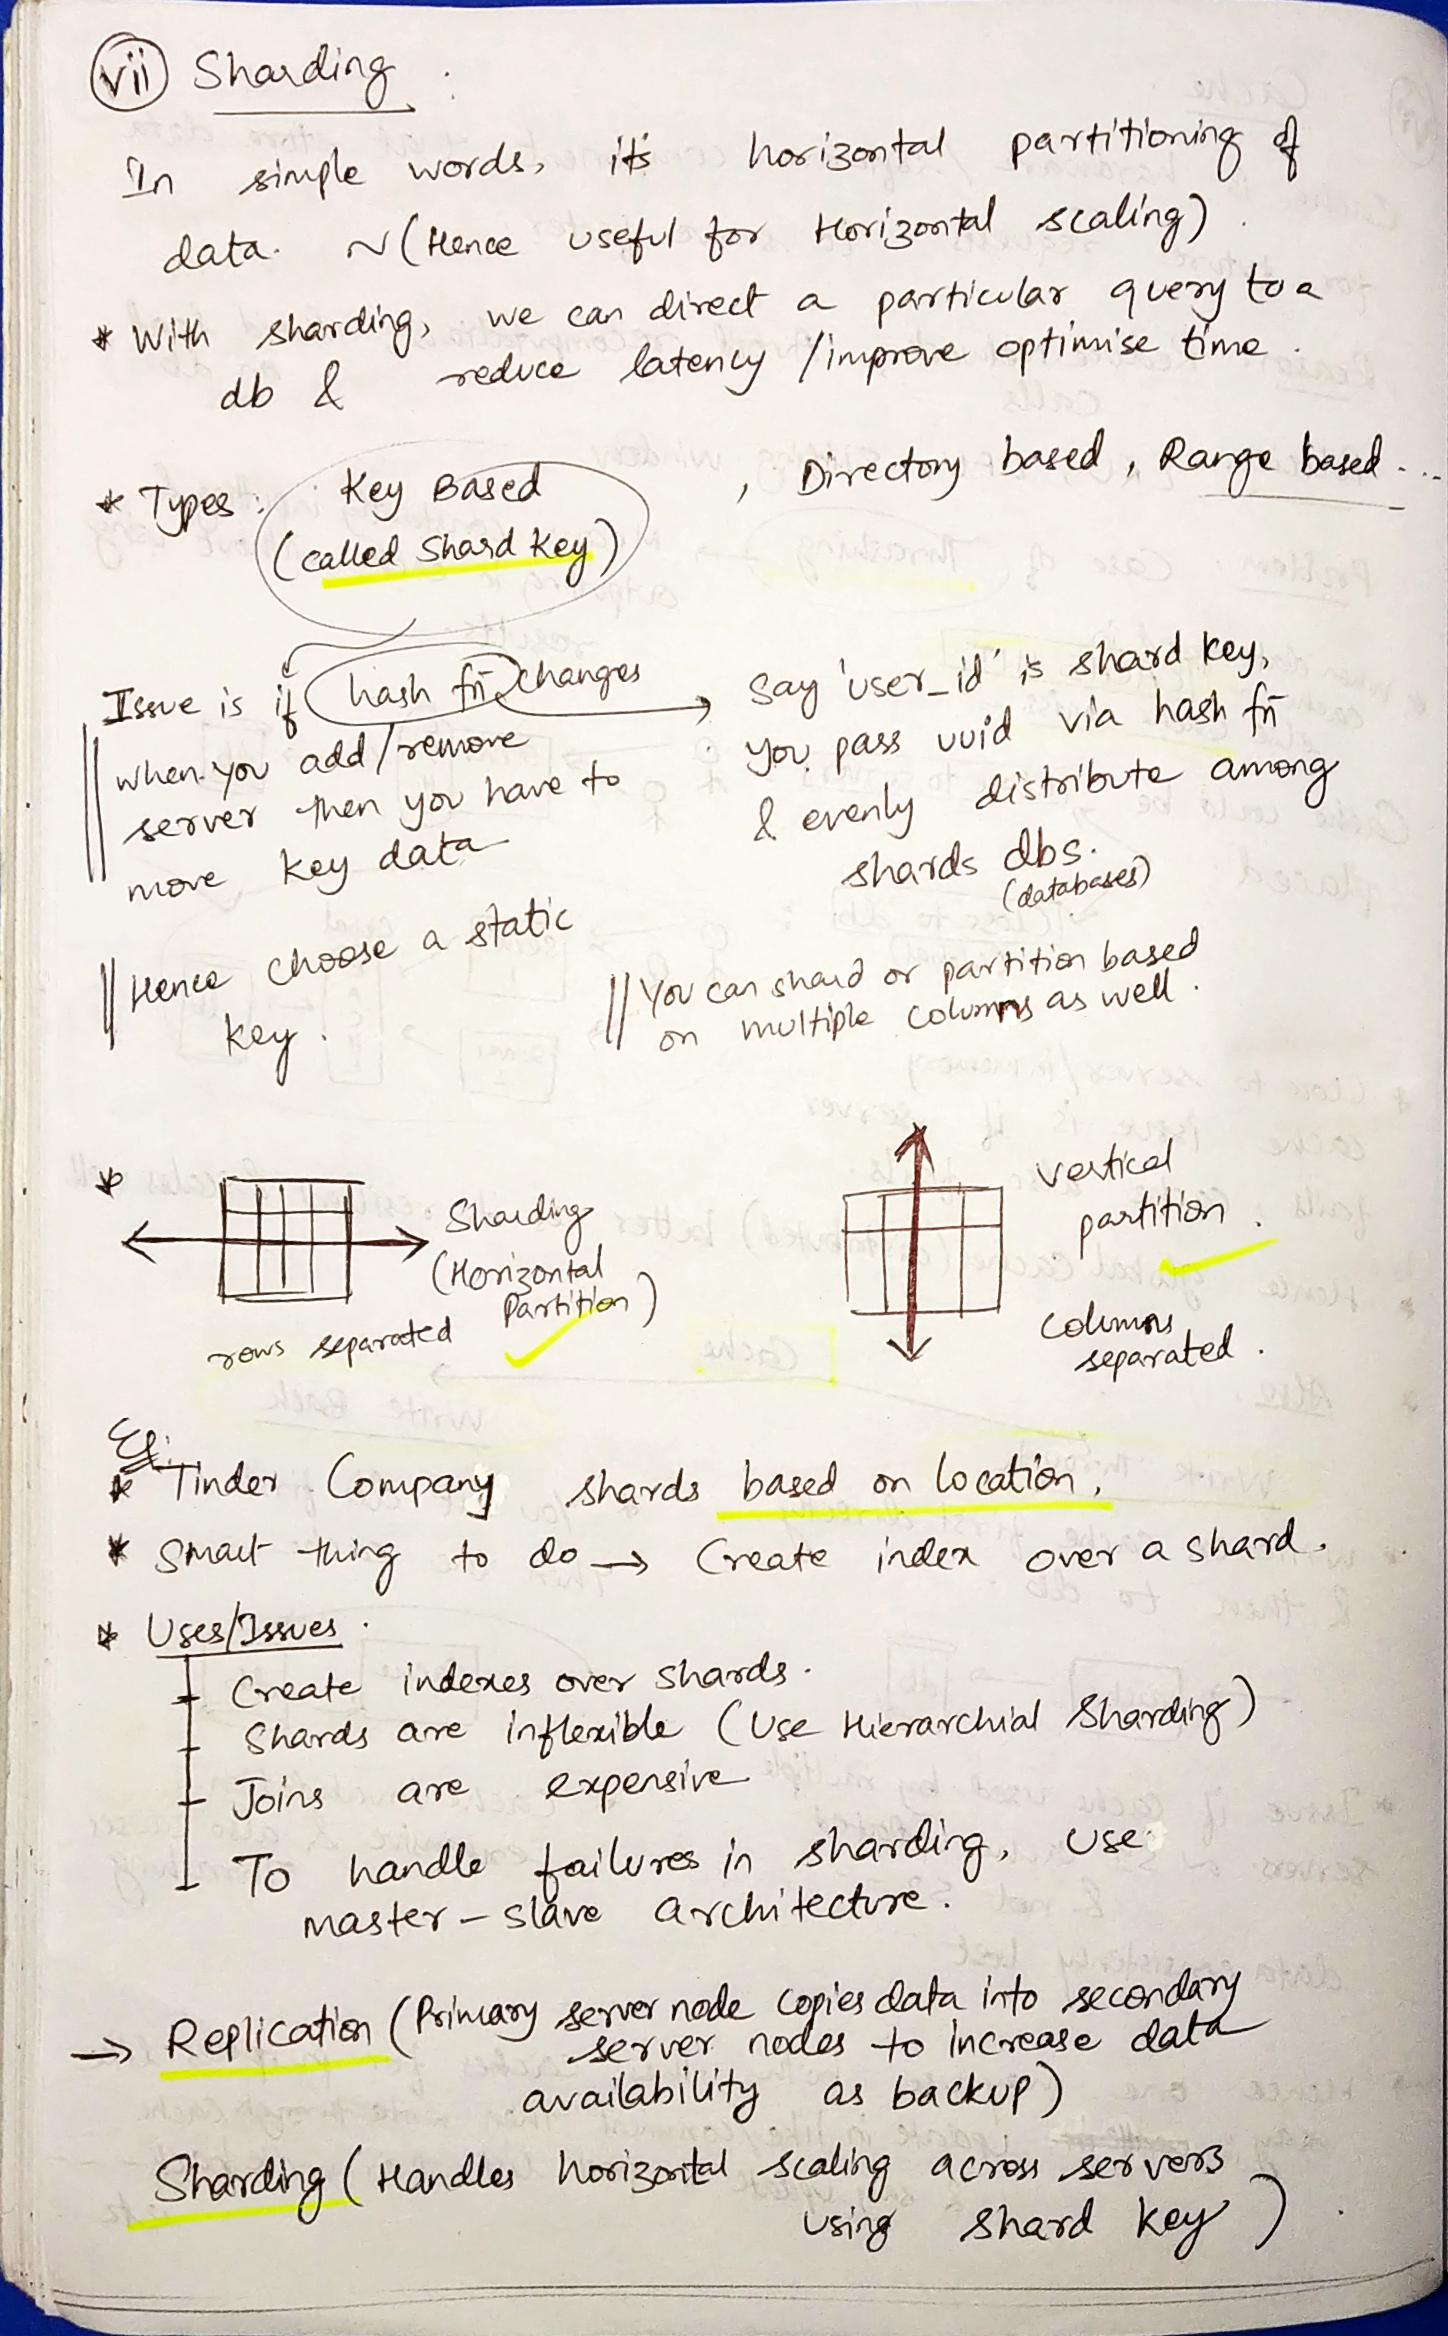 vii Sharding :
In simple words, it's horizontal partitioning of
data. ~ (Hence useful for Horizontal scaling).
* With sharding, we can direct a particular query to a
db & reduce latency / improve optimise time.
* Types : Key Based , Directory based, Range based ...
(called Shard Key)
Issue is if hash fn changes
when you add/remove
server then you have to
move key data
Say 'user_id' is shard key,
you pass uuid via hash fn
& evenly distribute among
shards dbs.
(databases)
Hence choose a static
key.
You can shard or partition based
on multiple columns as well.
* Sharding
(Horizontal
Partition)
rows separated
vertical
partition.
columns
separated.
Eg:
* Tinder Company shards based on location.
* Smart thing to do → Create index over a shard.
* Uses/Issues.
Create indexes over shards.
Shards are inflexible (Use Hierarchial Sharding)
Joins are expensive
To handle failures in sharding, use
master-slave architecture.
→ Replication (Primary server node copies data into secondary
server nodes to increase data
availability as backup)
Sharding (Handles horizontal scaling across servers
using shard key).